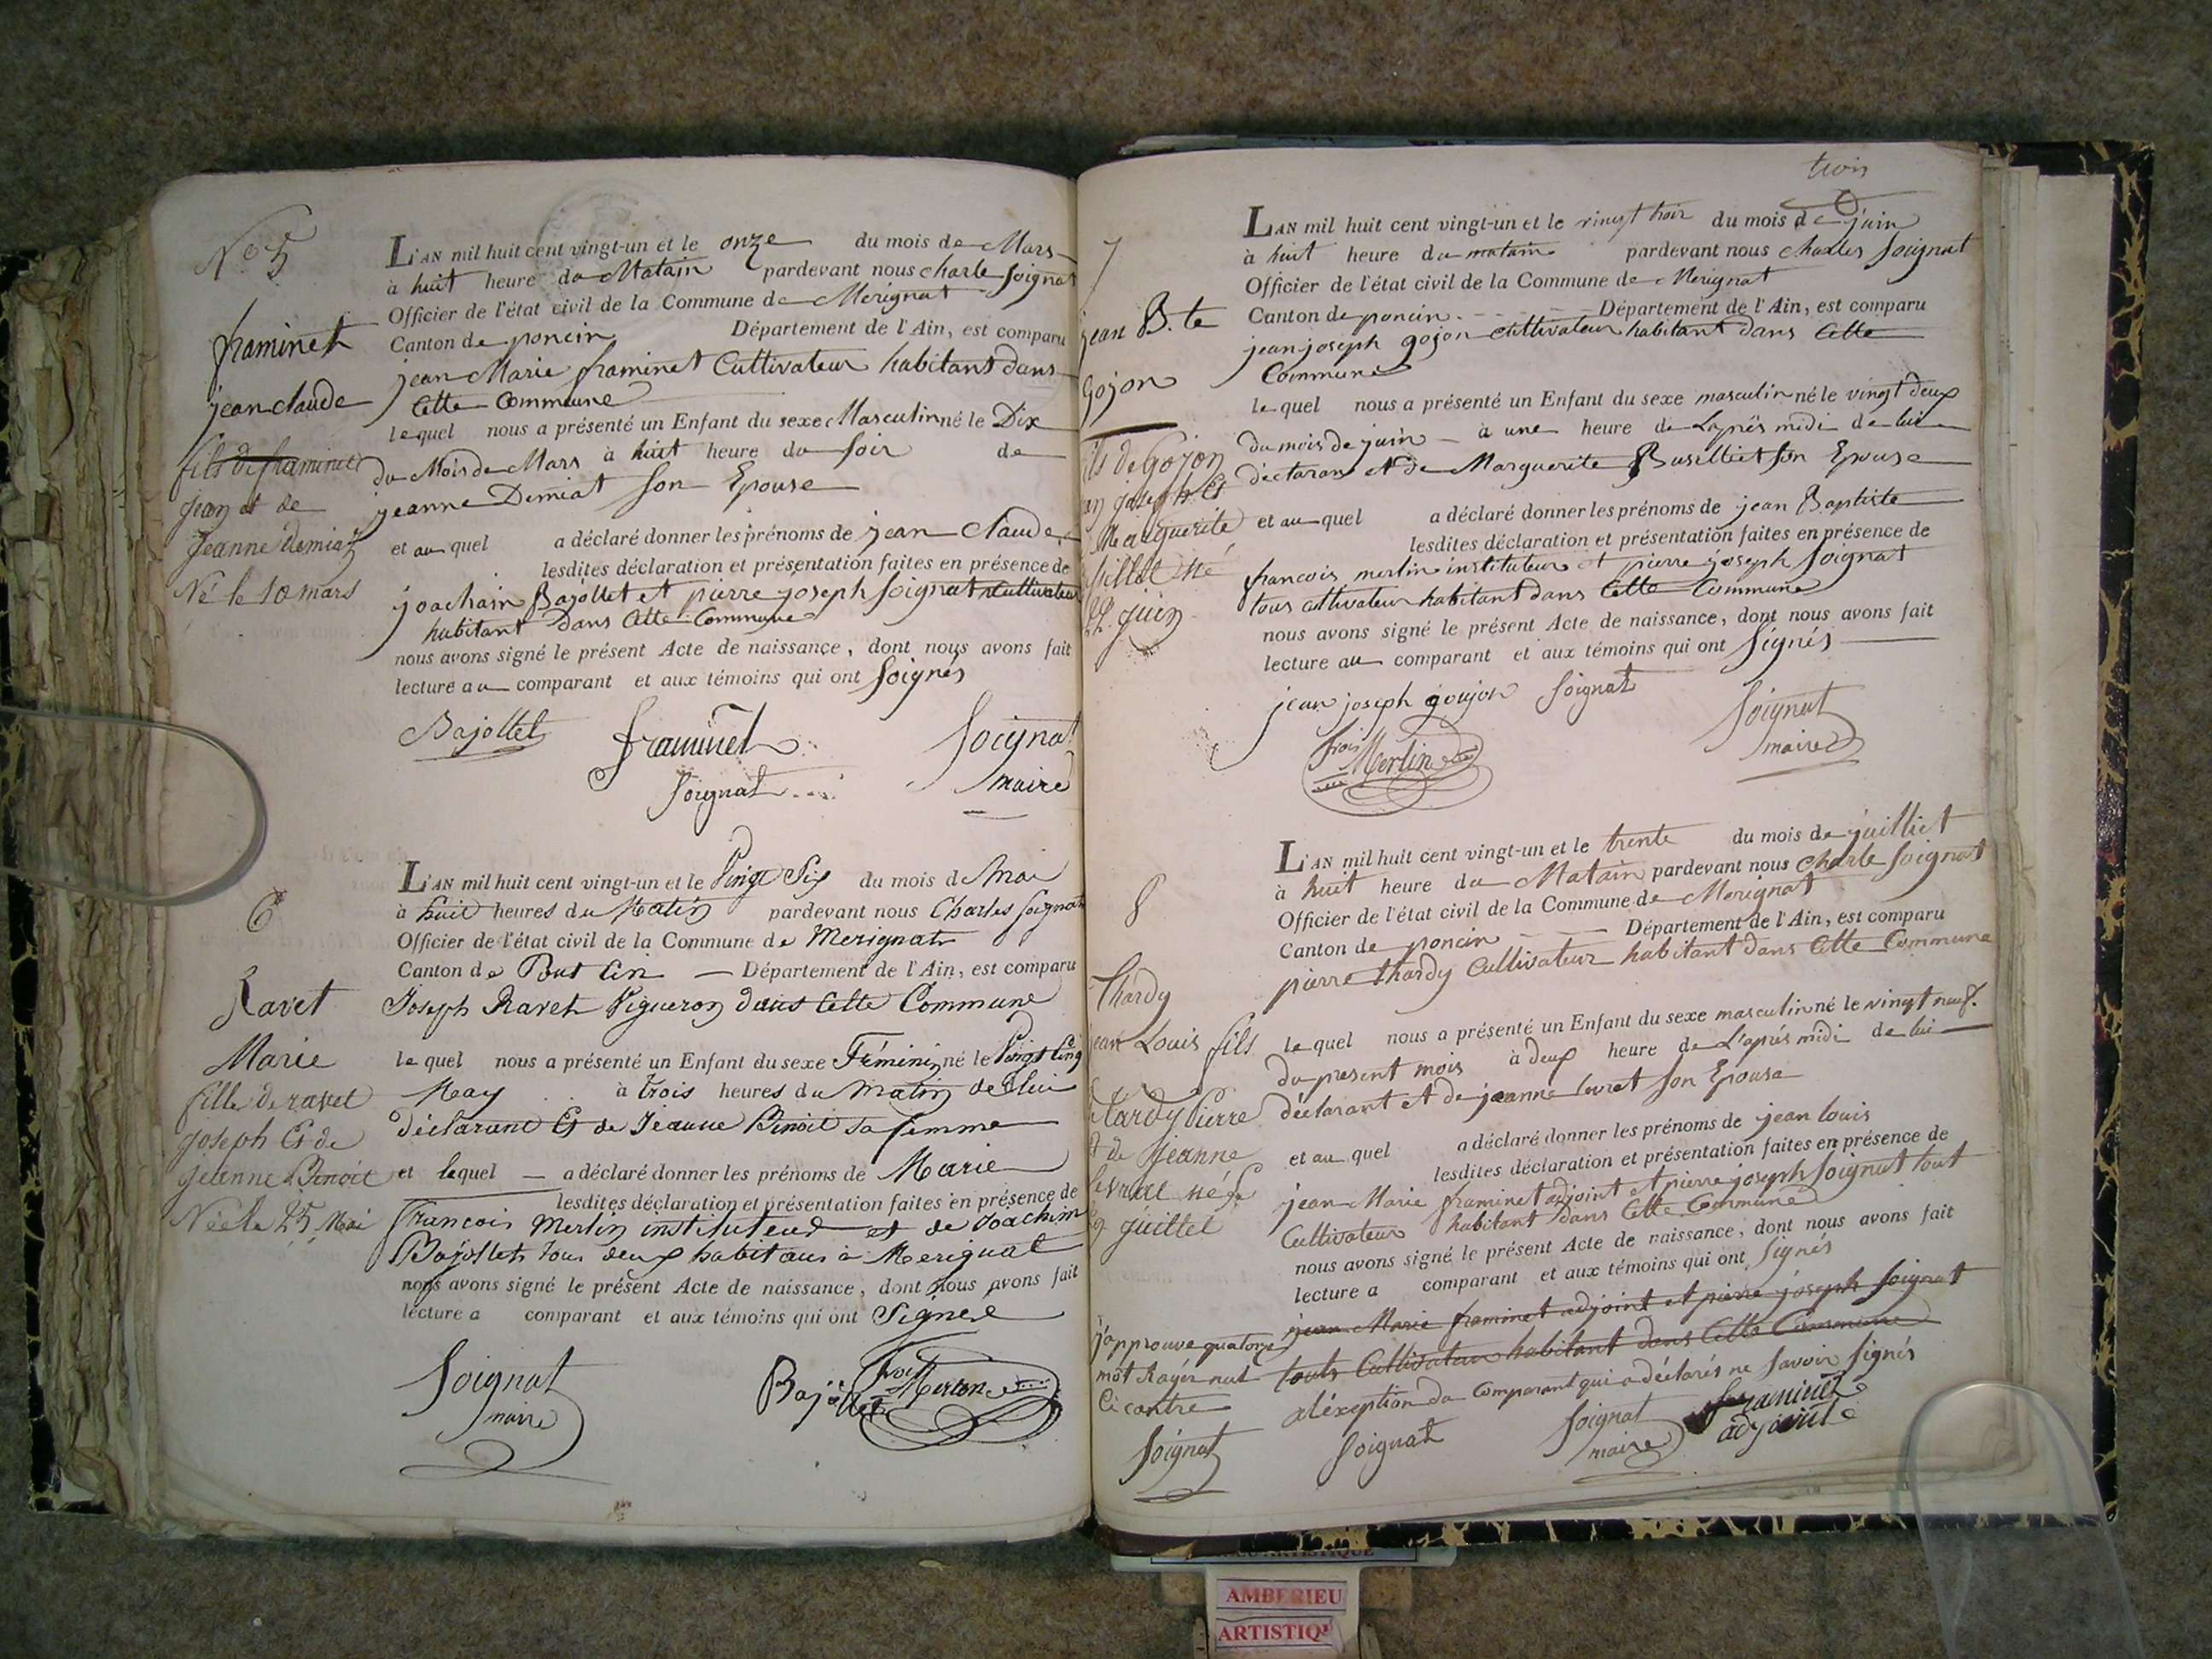 N.o 5
framinet
jean claude
fils de framinet
jean et de
Jeanne demiat
Né le 10 mars
L'AN mil huit cent vingt-un et le onze du mois de Mars
à huit heure du Matain pardevant nous charle soignat
Officier de l'état civil de la Commune de Merignat
Canton de poncin Département de l'Ain, est comparu
jean Marie framinet Cultivateur habitant dans
Cette Commune
lequel nous a présenté un Enfant du sexe Masculin né le Dix
du Mois de Mars à huit heure du soir de
jeanne Demiat son Epouse
et au quel a déclaré donner les prénoms de jean Claude
lesdites déclaration et présentation faites en présence de
joachain Bajollet et pierre joseph soignat Cultivateur
habitant dans Cette Commune
nous avons signé le présent Acte de naissance, dont nous avons fait
lecture au comparant et aux témoins qui ont soignés
Bajollet framinet soignat
soignat maire
6
Ravet
Marie
fille de ravet
joseph Et de
jeanne Benoit
Née le 25 Mai
L'AN mil huit cent vingt-un et le Vingt Six du mois de Mai
à huit heures du Matin pardevant nous Charles soignat
Officier de l'état civil de la Commune de Merignat
Canton de Département de l'Ain, est comparu
Joseph Ravet Vigneron dans Cette Commune
le quel nous a présenté un Enfant du sexe Féminin né le Vingt Cinq
May à trois heures du Matin de lui
déclarant Et de Jeanne Benoit sa femme
et lequel a déclaré donner les prénoms de Marie
lesdites déclaration et présentation faites en présence de
francois Merlin instituteur et de Joachim
Bajollet tous deux habitans à Merignat
nous avons signé le présent Acte de naissance, dont nous avons fait
lecture a comparant et aux témoins qui ont Signé
Soignat
maire
Bajollet
frois Merlin
trois
7
jean B.te
Gojon
ils de Gojon
an joseph Et
Marguerite
sillet né
22. juin
LAN mil huit cent vingt-un et le vingt trois du mois de juin
à huit heure du matain pardevant nous charles soignat
Officier de l'état civil de la Commune de Merignat
Canton de poncin Département de l'Ain, est comparu
jean joseph gojon cultivateur habitant dans Cette
Commune
le quel nous a présenté un Enfant du sexe masculin né le vingt deux
du mois de juin à une heure de Laprés midi de lui
déclarant et de Marguerite Busilliet son Epouse
et au quel a déclaré donner les prénoms de jean Baptiste
lesdites déclaration et présentation faites en présence de
francois merlin instituteur et pierre joseph soignat
tous cultivateur habitant dans Cette Commune
nous avons signé le présent Acte de naissance, dont nous avons fait
lecture au comparant et aux témoins qui ont signés
jean joseph goujon soignat soignat
frois Merlin maire
8
Thardy
jean Louis fils
tardy Pierre
Et de Jeanne
levrat né le
29 juillet
L'AN mil huit cent vingt-un et le trente du mois de juilliet
à huit heure du Matain pardevant nous charle soignat
Officier de l'état civil de la Commune de Merignat
Canton de poncin Département de l'Ain, est comparu
pierre thardy Cultivateur habitant dans Cette Commune
le quel nous a présenté un Enfant du sexe masculin né le vingt neuf
du present mois à deux heure de L'aprés midi de lui
déclarant et de jeanne levret son Epouse
et au quel a déclaré donner les prénoms de jean louis
lesdites déclaration et présentation faites en présence de
jean Marie framinet adjoint et pierre joseph soignat tout
Cultivateur habitant dans Cette Commune
nous avons signé le présent Acte de naissance, dont nous avons fait
lecture a comparant et aux témoins qui ont signés
jean Marie framinet adjoint et pierre joseph soignat
touts Cultivateur habitant dans Cette Commune
aléxeption du Comparant qui a déclarés ne savoir signés
j'approuve quatorze
mot Rayér nul
Ci contre
soignat
soignat
soignat
maire
framinet
adjoint
AMBERIEU
ARTISTIQ